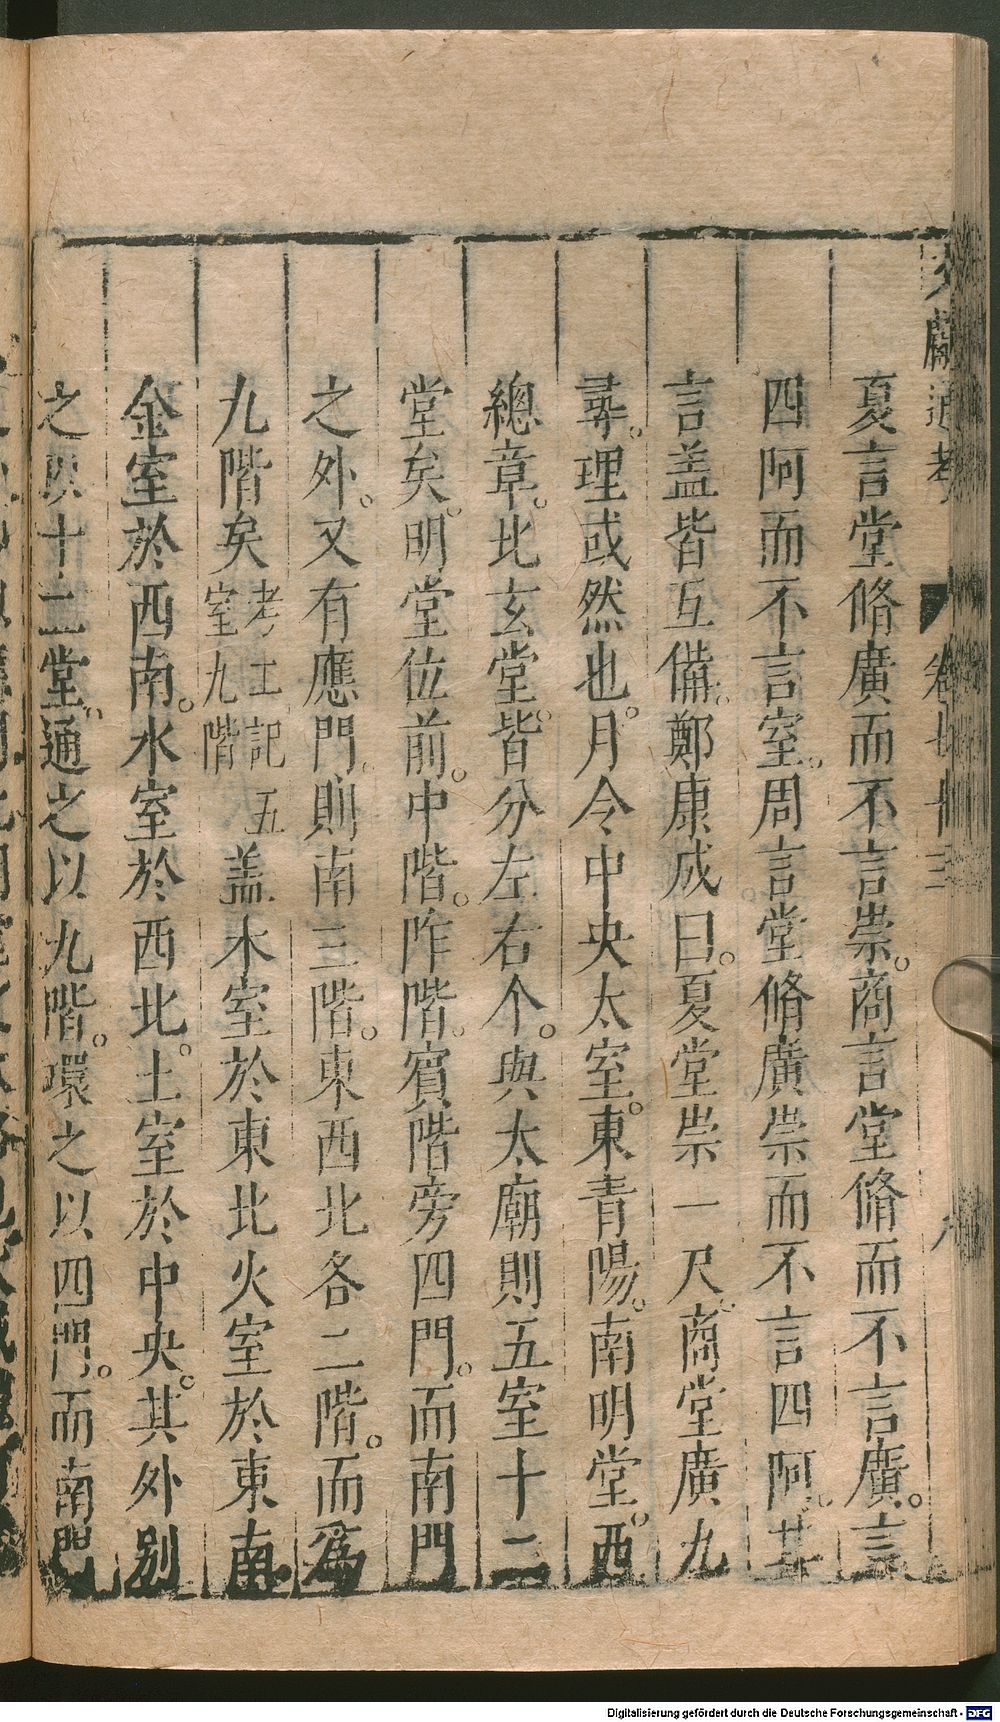 夏言堂脩廣而不言崇。商言堂脩而不言廣。言
四阿而不言室。周言堂脩廣崇而不言四阿。其
言盖皆互備。鄭康成曰。夏堂崇一尺。商堂廣九
尋。理或然也。月令中央太室。東青陽。南明堂。西
總章。北玄堂。皆分左右个。與太廟則五室十二
堂矣。明堂位前。中階。阼階。賓階旁四門。而南門
之外。又有應門。則南三階。東西北各二階。而為
九階矣考工記五室九階盖木室於東北火室於東南
金室於西南。水室於西北。土室於中央。其外別
之以十二堂。通之以九階。環之以四門。而南門
文獻通考 卷七十三
Digitalisierung gefördert durch die Deutsche Forschungsgemeinschaft - DFG